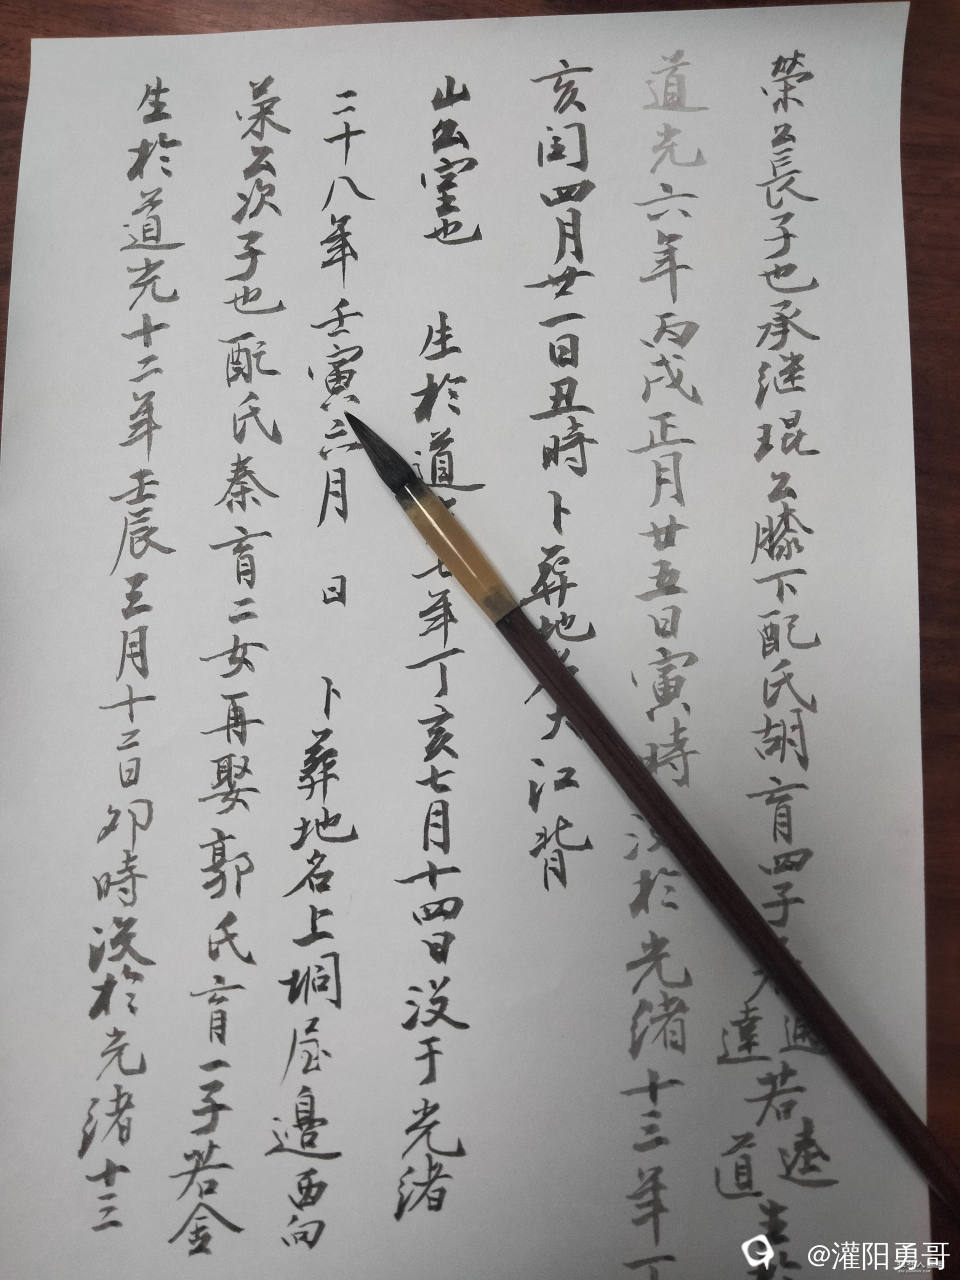 榮公長子也承继琨公膝下配氏胡育四子若通達若逵道生於
道光六年丙戌正月廿五日寅時没於光绪十三年丁
亥閏四月廿一日丑時卜葬地名大江背
山公室也 生於道光七年丁亥七月十四日没于光绪
二十八年壬寅六月 日 卜葬地名上垌屋邊西向
榮公次子也配氏秦育二女再娶郭氏育一子若金
生於道光十二年壬辰三月十二日卯時没於光绪十三
@灌阳勇哥